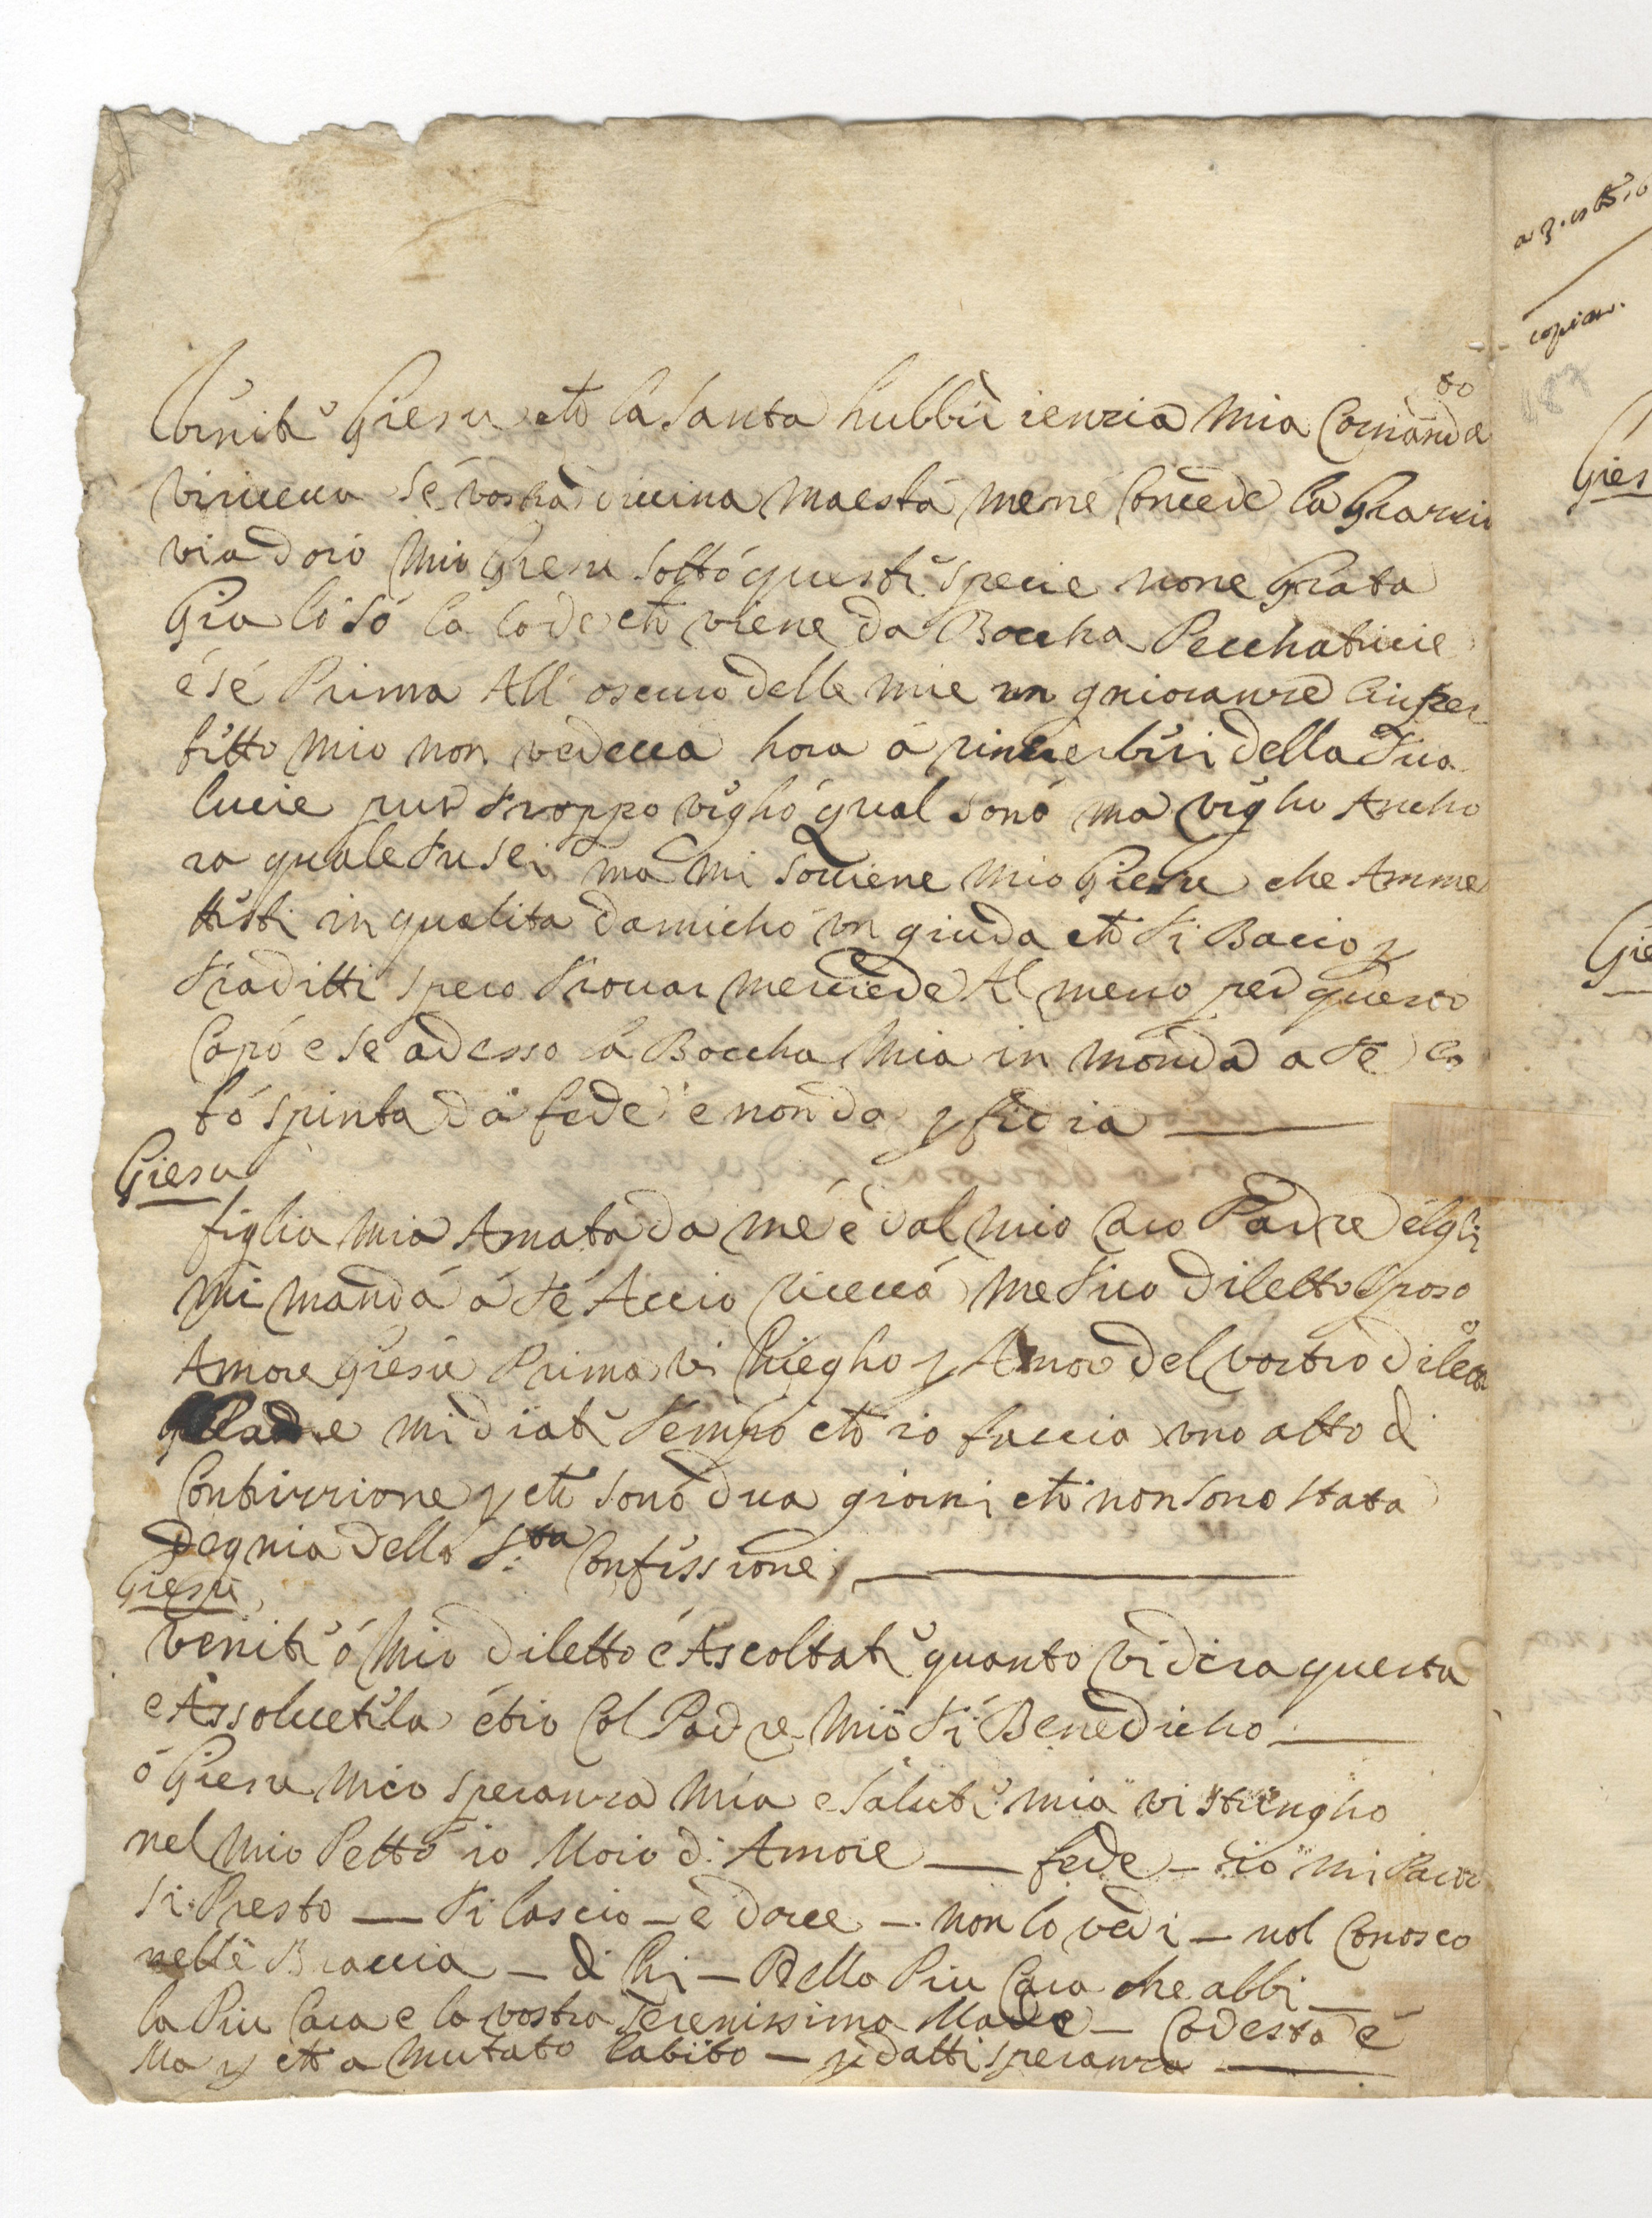 Venite Giesu che la santa hubbidienzia mia Comanda
vi riceva sé vostra divina maestá mene Concede la Grazzia
via doro mio Giesu sotto queste specie none Grata
Gia lo só la lode che viene da Boccha Pecchatricie
é sé Prima All oscuro delle mie in gnioranze
fetto mio non vedeva hora á rinverberi della tua
lucie pur troppo vegho qual sono ma vegho Ancho
ra quale tu sei ma mi soviene mio Giesu che Amme
ttesti in qualita damicho un giuda che ti Bacio p
tradirti spero trovar merciede Al meno per questo
Capó e se adesso la Boccha mia in monda a te
é spinta da fede e non da pfidia
Giesu
figlia mia Amata da me é dal mio Caro Padre elgli
mi manda á té Accio riceva me tuo diletto sposo
Amore Giesu Prima vi Priegho p Amor del vostro diletto
Padre mi diate tempo che io faccia uno atto di
Contrizzione p che sono dua giorni che non sono stata
degnia della S.ta Confessione
Giesu
venite ó mio diletto é Ascoltate quanto vi dira questa
e Assolvetela é io Col Padre mio ti Benedicho
ó Giesu mio speranza mia e salute mia vi stringho
nel mio Petto io Moio di Amore — fede — io mi
si Presto — ti lascio — e dove — non lo vedi — nol Conosco
nelle Braccia — di Chi — Della Piu Cara che abbi —
la Piu Cara e la vostra serenissima Madre — Codesta é
Ma p che a mutato labito — p datti speranza
copiar.
Gies
Gie